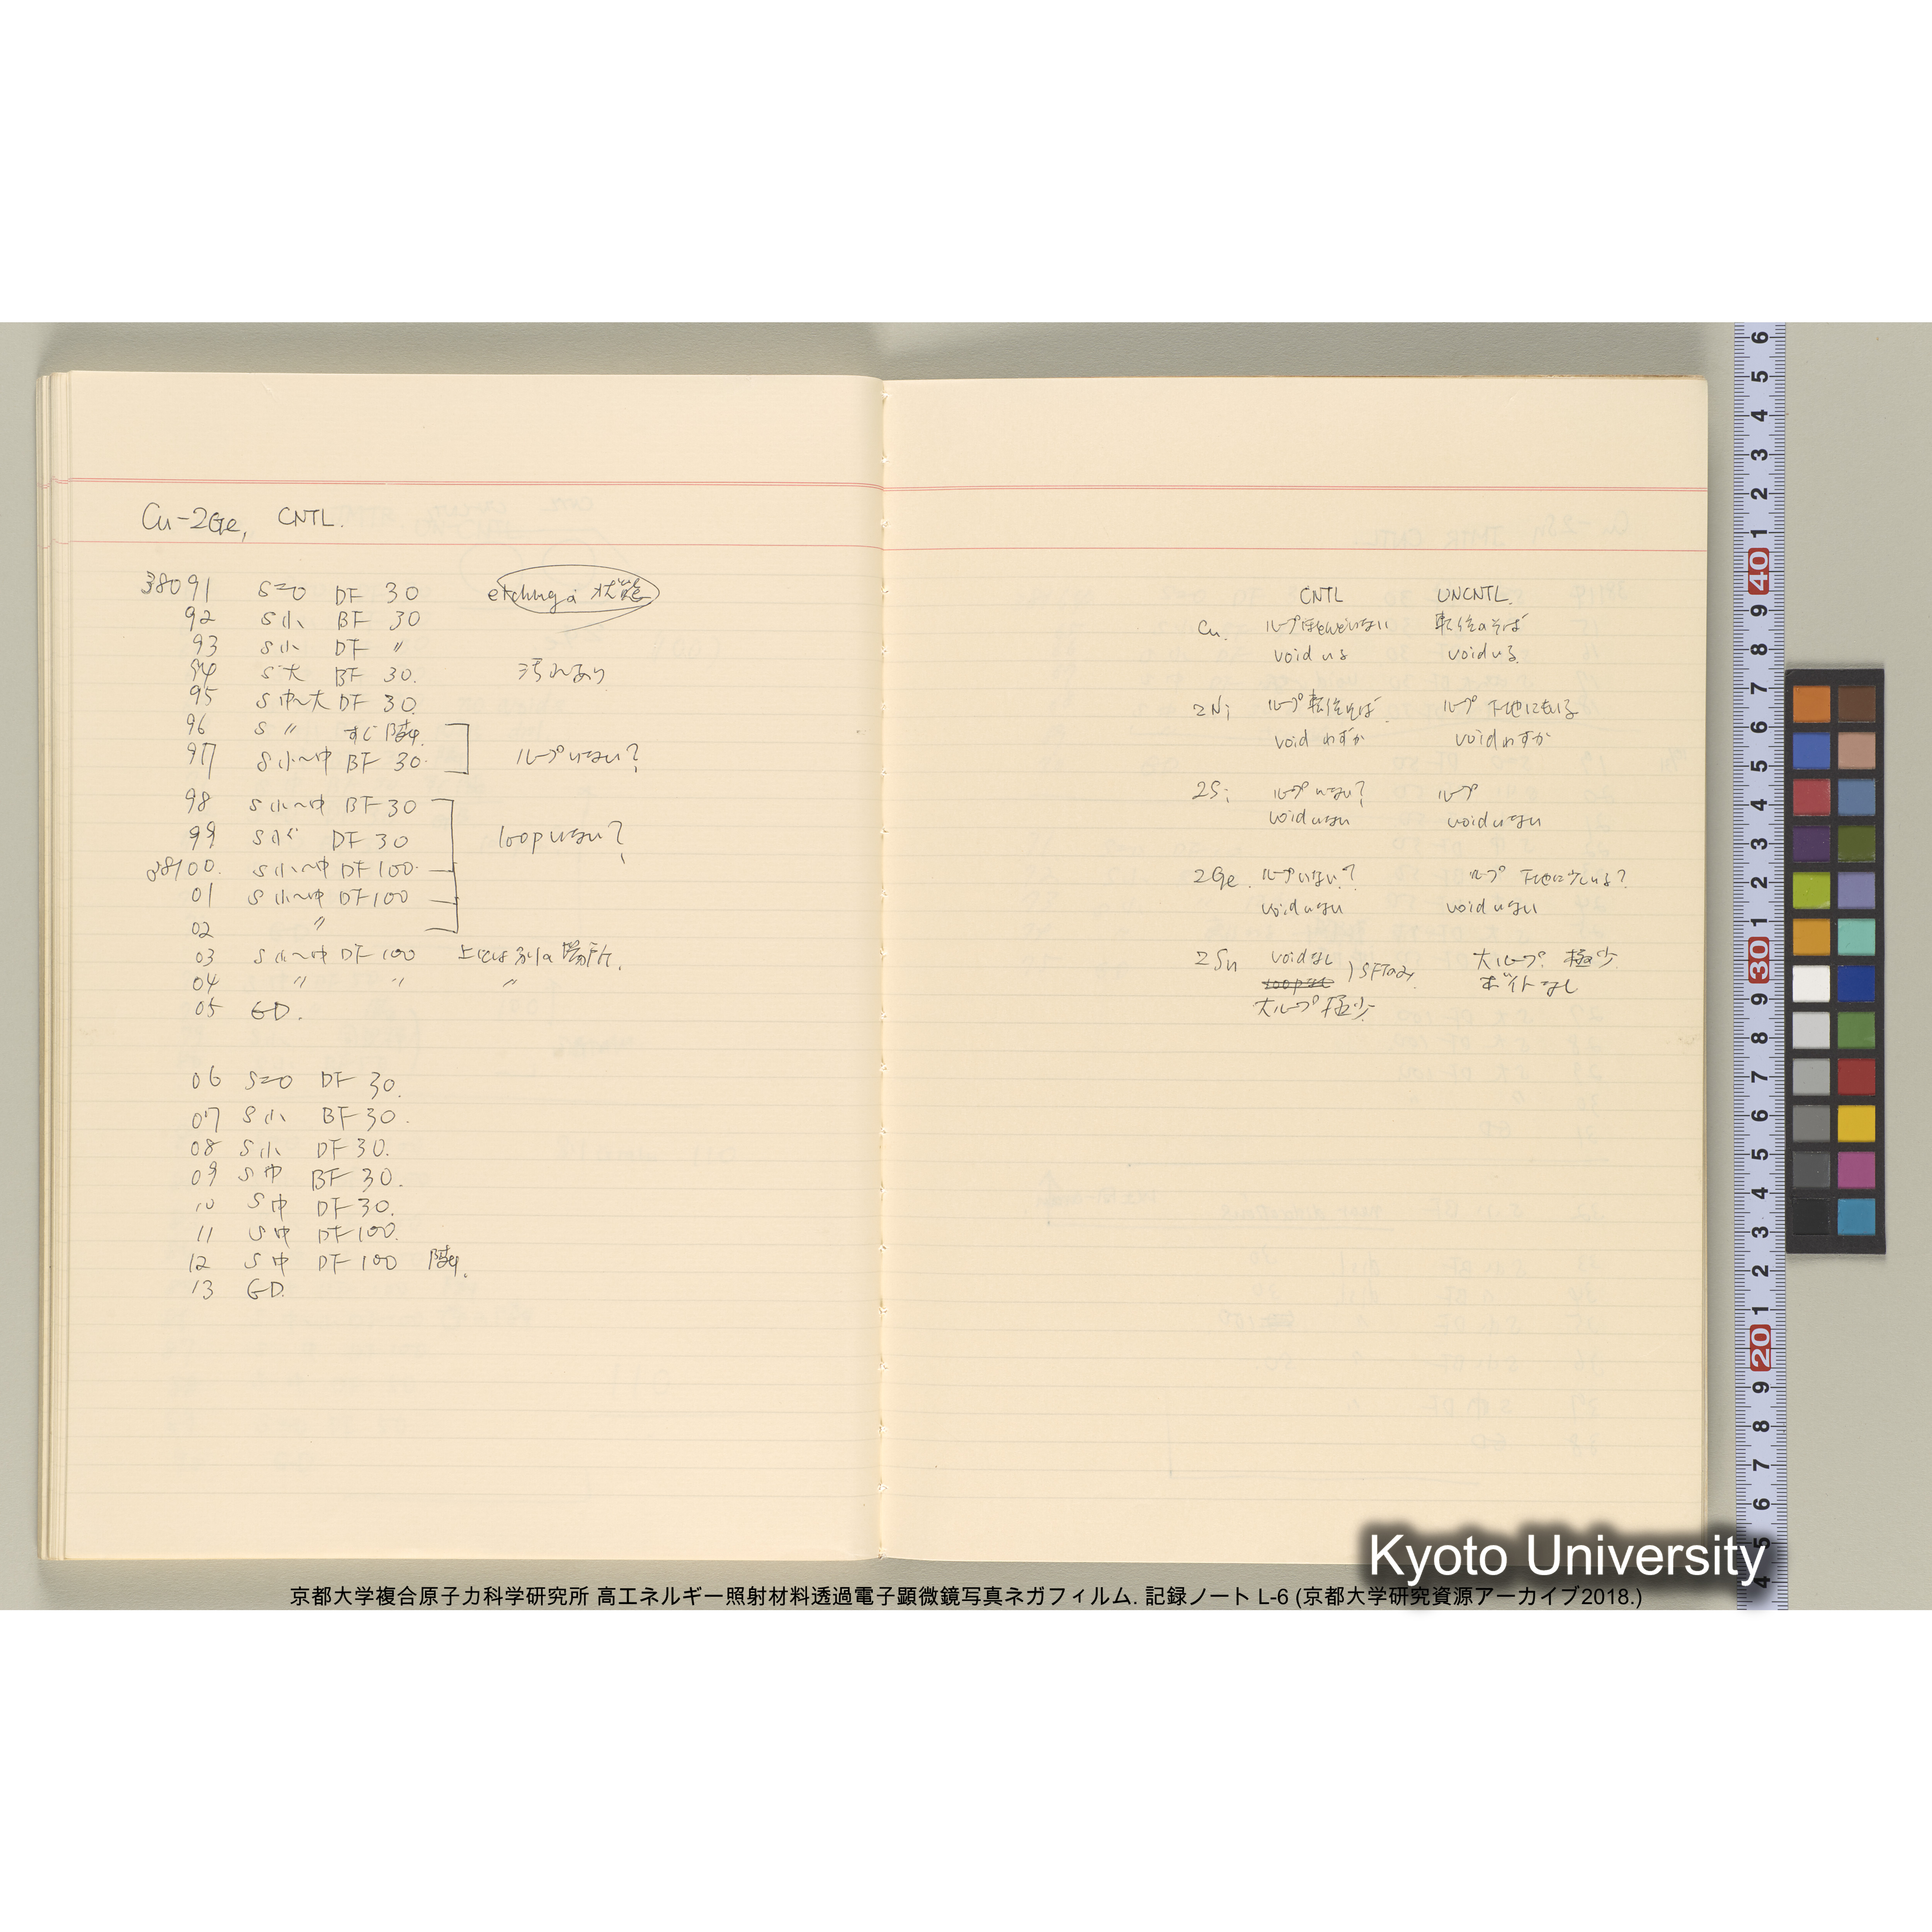 Cu-2Ge, CNTL.
38091 S=0 DF 30 etchingの状態
92 S小 BF 30
93 S小 DF 〃
94 S大 BF 30. 汚れあり
95 S中~大 DF 30.
96 S 〃 すぐ隣.
97 S小~中 BF 30. ループいない?
98 S小~中 BF 30
99 S小 DF 30 loopいない?
38100. S小~中 DF 100.
01 S小~中 DF 100
02 〃
03 S小~中 DF 100 上とは別の場所.
04 〃 〃 〃
05 ED.
06 S=0 DF 30.
07 S小 BF 30.
08 S小 DF 30.
09 S中 BF 30.
10 S中 DF 30.
11 S中 DF 100.
12 S中 DF 100 隣.
13 ED.
CNTL UNCNTL.
Cu. ループほとんどいない 転位のそば
voidいる voidいる.
2Ni ループ転位そば ループ 下地にもいる
void わずか voidわずか
2Si ループいない? ループ
voidいない voidいない
2Ge. ループいない? ループ 下地に少しいる?
voidいない voidいない
2Sn voidなし 大ループ. 極少.
loopなし ) SFTのみ. ボイドなし
大ループ 極少.
6
5
4
3
2
1
40
9
8
7
6
5
4
3
2
1
30
9
8
7
6
5
4
3
2
1
20
9
8
7
6
5
4
Kyoto University
京都大学複合原子力科学研究所 高エネルギー照射材料透過電子顕微鏡写真ネガフィルム. 記録ノート L-6 (京都大学研究資源アーカイブ2018.)